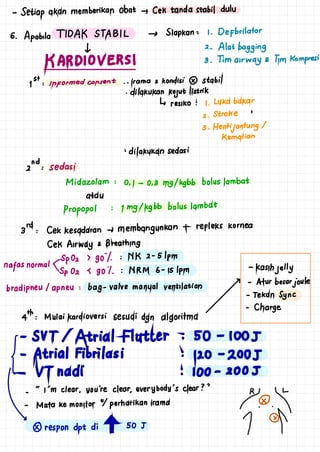 - Setiap akan memberikan obat → Cek tanda stabil dulu
6. Apabila TIDAK STABIL → Siapkan: 1. Defbrilator
2. Alat bagging
3. Tim airway & Tim Kompresi
↓
KARDIOVERSI
1st: informed consent .. irama & kondisi ⓧ stabil
· dilakukan kejut listrik
↳ resiko : 1. Luka bakar
2. Stroke
3. Henti jantung / Kematian
· dilakukan sedasi
2nd: sedasi
Midazolam : 0,1 - 0,3 mg/kgbb bolus lambat
atau
Propopol : 1 mg/kgbb bolus lambat
3rd: Cek kesadaran → membangunkan + refleks kornea
Cek Airway & Breathing
nafas normal < SpO2 > 90% : NK 2-5 lpm
SpO2 < 90% : NRM 6-15 lpm
bradipneu / apneu : bag-valve manual ventilation
- kasih jelly
- Atur besar joule
- Tekan Sync
- Charge
4th: Mulai kardioversi sesuai dgn algoritma
- SVT / Atrial Flutter : 50 - 100 J
- Atrial Fibrilasi : 120 - 200 J
- VT nadi : 100 - 200 J
- "I'm clear, you're clear, everybody's clear?"
- Mata ke monitor u/ perhatikan irama
ⓧ respon dpt di ↑ 50 J
R L